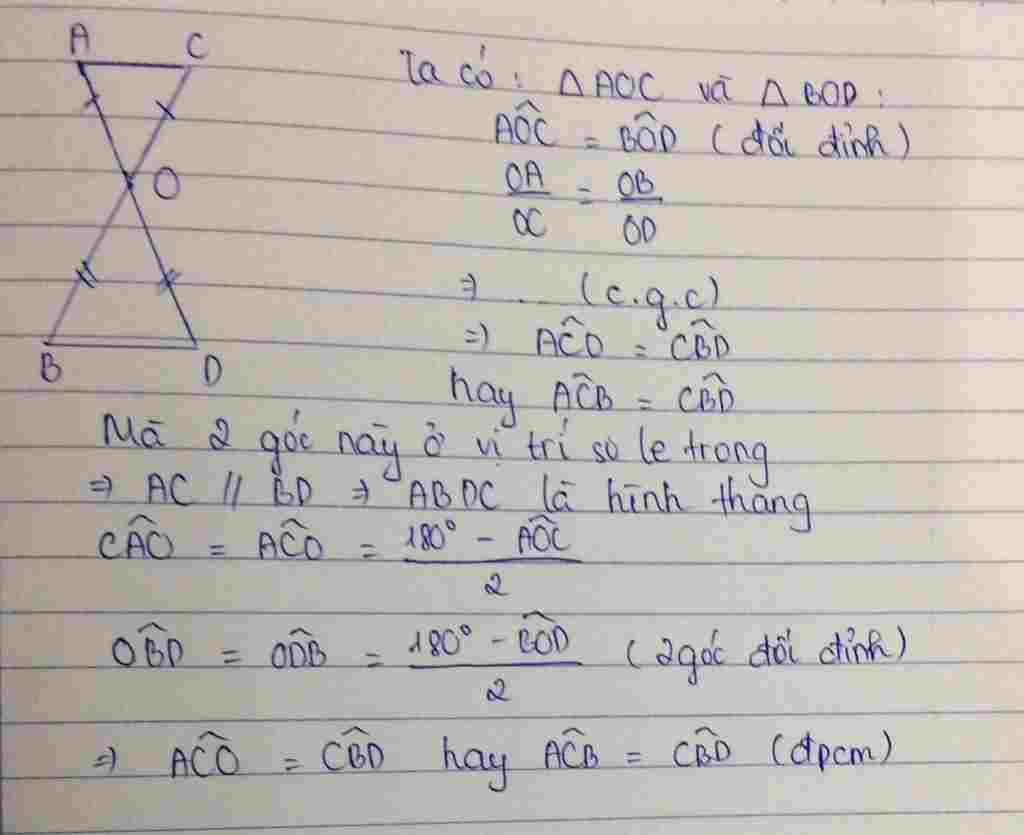 A C
O
B D
Ta có: △ AOC và △ BOD:
AÔC = BÔD (đối đỉnh)
OA/OC = OB/OD
⇒ ... (c.g.c)
⇒) AĈO = CB̂D
hay AĈB = CB̂D
Mà 2 góc này ở vị trí so le trong
⇒ AC // BD ⇒ ABDC là hình thang
CÂO = AĈO = (180° - AÔC)/2
OB̂D = OD̂B = (180° - BÔD)/2 (2 góc đối đỉnh)
⇒) AĈO = CB̂D hay AĈB = CB̂D (đpcm)